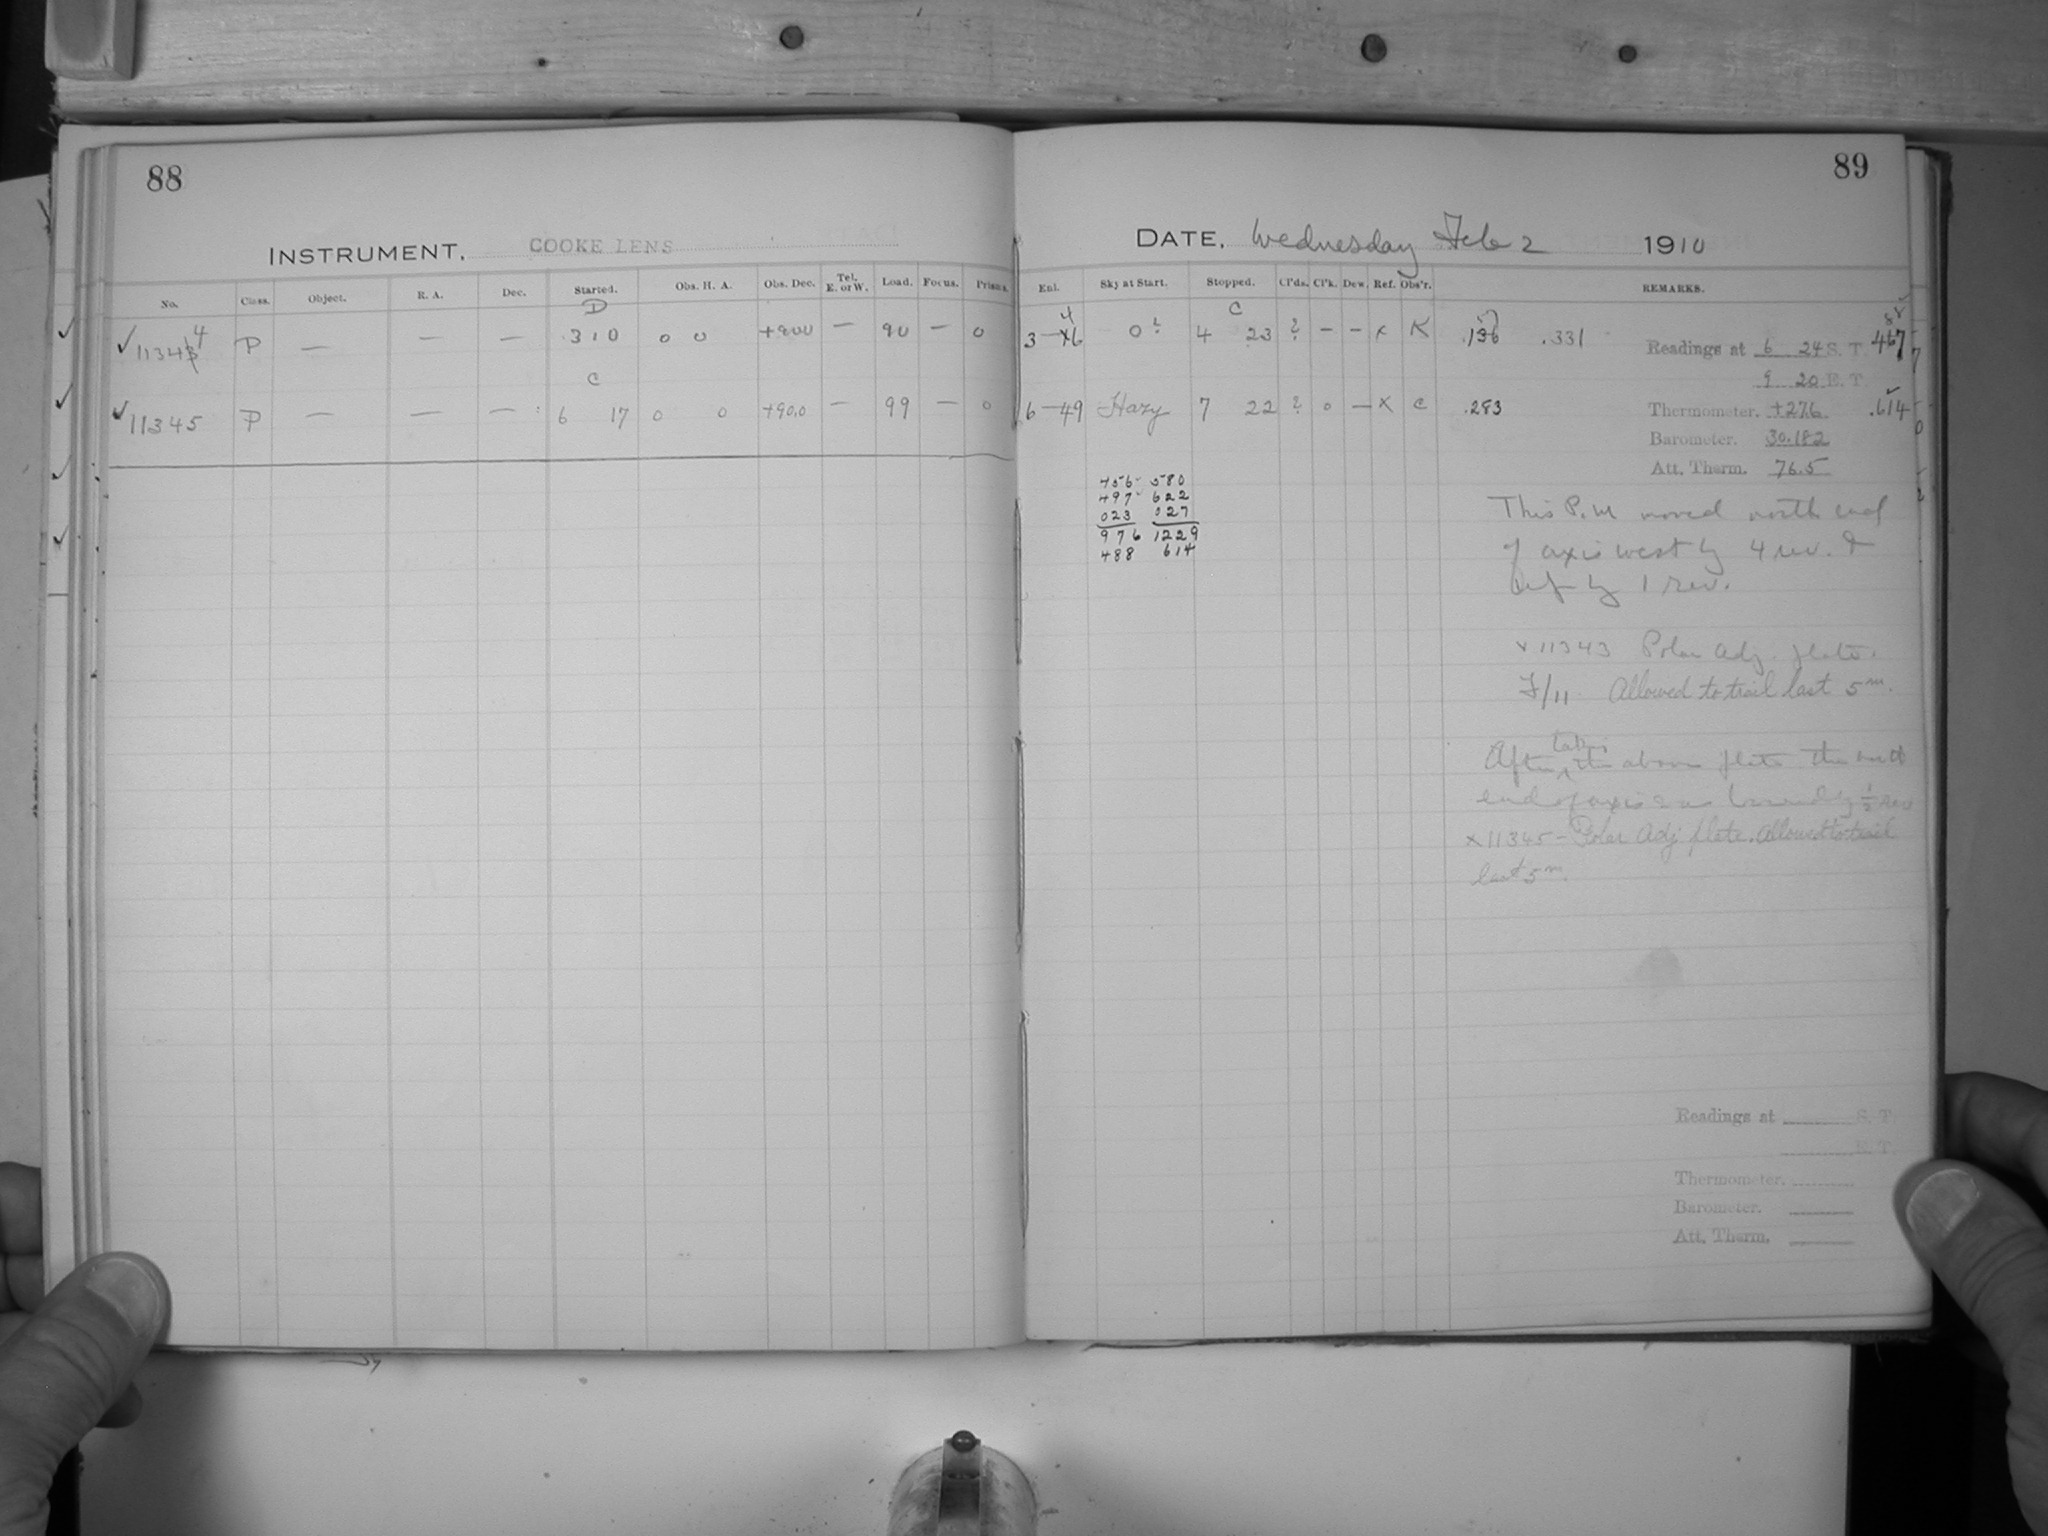 88
INSTRUMENT. COOKE LENS
No. Class. Object. R. A. Dec. Started. Obs. H. A. Obs. Dec. Tel. E. or W. Load. Focus. Prisms.
D
✓ 113434 P — — — 3 10 0 0 +900 — 90 — 0
C
✓ 11345 P — — — 6 17 0 0 +90.0 — 99 — 0
89
DATE. Wednesday Feb 2 1910
Enl. Sky at Start. Stopped. Cl'ds. Cl'k. Dew. Ref. Obs'r. REMARKS.
4 C
3—16 0? 4 23 ? — — x K .136 .331
6—49 Hazy 7 22 ? 0 — x C .283
Readings at 6 24 S. T. 467
9 20 E. T.
Thermometer. +27.6 .614
Barometer. 30.182
Att. Therm. 76.5
456 580
497 622
023 027
976 1229
488 614
This P.M moved north end
of axis west by 4 rev. &
up by 1 rev.
x 11343 Polar Adj. plate.
F/11 Allowed to trail last 5m.
taking
After the above plate the north
end of axis was lowered by 1/2 rev
x 11345 — Polar Adj plate. Allowed to trail
last 5m.
Readings at S. T.
E. T.
Thermometer.
Barometer.
Att. Therm.